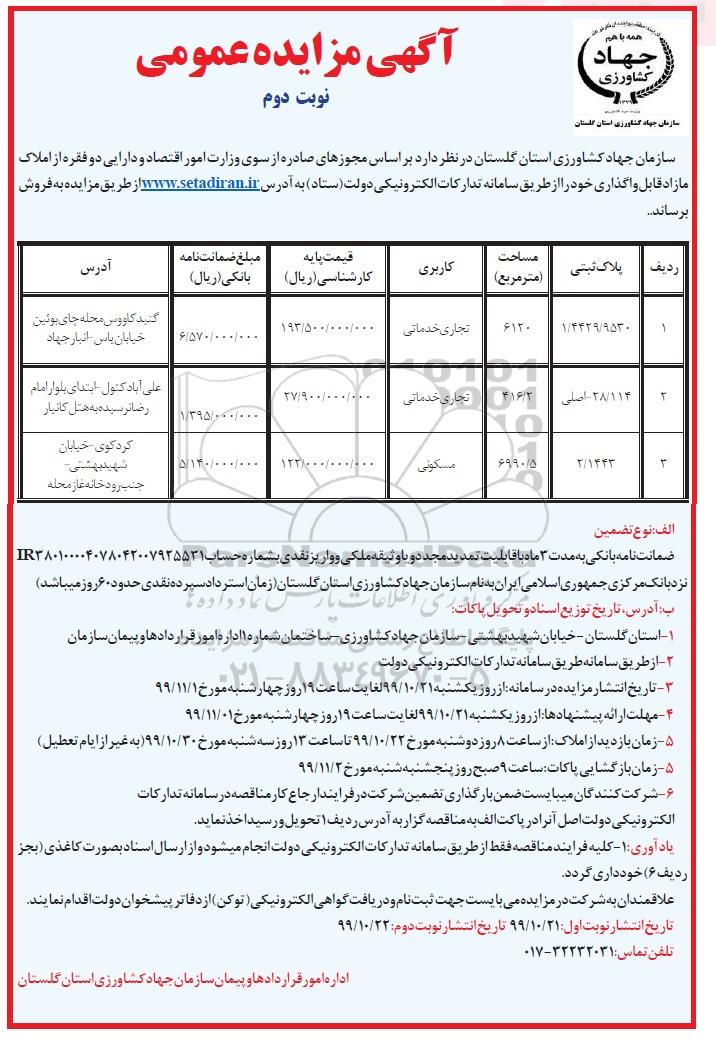 همه با هم
جهاد
کشاورزی
۱۳۷۹
سازمان جهاد کشاورزی استان گلستان
آگهی مزایده عمومی
نوبت دوم
سازمان جهاد کشاورزی استان گلستان در نظر دارد بر اساس مجوزهای صادره از سوی وزارت امور اقتصاد و دارایی دو فقره از املاک
مازاد قابل واگذاری خود را از طریق سامانه تدارکات الکترونیکی دولت (ستاد) به آدرس www.setadiran.ir از طریق مزایده به فروش
برساند..
ردیف پلاک ثبتی مساحت (مترمربع) کاربری قیمت پایه کارشناسی (ریال) مبلغ ضمانت نامه بانکی (ریال) آدرس
۱ ۱/۴۴۲۹/۹۵۳۰ ۶۱۲۰ تجاری خدماتی ۱۹۳/۵۰۰/۰۰۰/۰۰۰ ۶/۵۷۰/۰۰۰/۰۰۰ گنبد کاووس محله چای بوئین خیابان یاس-انبار جهاد
۲ ۲۸/۱۱۴-اصلی ۴۱۶/۲ تجاری خدماتی ۲۷/۹۰۰/۰۰۰/۰۰۰ ۱/۳۹۵/۰۰۰/۰۰۰ علی آباد کتول-ابتدای بلوار امام رضا نرسیده به هتل کانیار
۳ ۲/۱۴۴۳ ۶۹۹۰/۵ مسکونی ۱۲۲/۰۰۰/۰۰۰/۰۰۰ ۵/۱۴۰/۰۰۰/۰۰۰ کردکوی-خیابان شهید بهشتی-جنب رودخانه غاز محله
الف: نوع تضمین
ضمانت نامه بانکی به مدت ۳ ماه با قابلیت تمدید مجدد و یا وثیقه ملکی و واریز نقدی بشماره حساب IR۳۸۰۱۰۰۰۰۴۰۷۸۰۴۲۰۰۷۹۲۵۵۳۱
نزد بانک مرکزی جمهوری اسلامی ایران به نام سازمان جهاد کشاورزی استان گلستان (زمان استرداد سپرده نقدی حدود ۶۰ روز میباشد)
ب: آدرس، تاریخ توزیع اسناد و تحویل پاکات:
۱-استان گلستان-خیابان شهید بهشتی-سازمان جهاد کشاورزی-ساختمان شماره ۱ اداره امور قراردادها و پیمان سازمان
۲-از طریق سامانه طریق سامانه تدارکات الکترونیکی دولت
۳-تاریخ انتشار مزایده در سامانه: از روز یکشنبه ۹۹/۱۰/۲۱ لغایت ساعت ۱۹ روز چهارشنبه مورخ ۹۹/۱۱/۱
۴-مهلت ارائه پیشنهادها: از روز یکشنبه ۹۹/۱۰/۲۱ لغایت ساعت ۱۹ روز چهارشنبه مورخ ۹۹/۱۱/۰۱
۵-زمان بازدید از املاک: از ساعت ۸ روز دوشنبه مورخ ۹۹/۱۰/۲۲ تا ساعت ۱۳ روز سه شنبه مورخ ۹۹/۱۰/۳۰ (به غیر از ایام تعطیل)
۵-زمان بازگشایی پاکات: ساعت ۹ صبح روز پنجشنبه شنبه مورخ ۹۹/۱۱/۲
۶-شرکت کنندگان میبایست ضمن بارگذاری تضمین شرکت در فرایند ارجاع کار مناقصه در سامانه تدارکات
الکترونیکی دولت اصل آنرا در پاکت الف به مناقصه گزار به آدرس ردیف ۱ تحویل و رسید اخذ نماید.
یادآوری: ۱-کلیه فرایند مناقصه فقط از طریق سامانه تدارکات الکترونیکی دولت انجام میشود و از ارسال اسناد بصورت کاغذی (بجز
ردیف ۶) خودداری گردد.
علاقمندان به شرکت در مزایده می بایست جهت ثبت نام و دریافت گواهی الکترونیکی (توکن) از دفاتر پیشخوان دولت اقدام نمایند.
تاریخ انتشار نوبت اول: ۹۹/۱۰/۲۱ تاریخ انتشار نوبت دوم: ۹۹/۱۰/۲۲
تلفن تماس: ۳۲۲۳۲۰۳۱-۰۱۷
اداره امور قراردادها و پیمان سازمان جهاد کشاورزی استان گلستان
ParsNamadData
۰۲۱-۸۸۳۴۹۶۷۰-۵